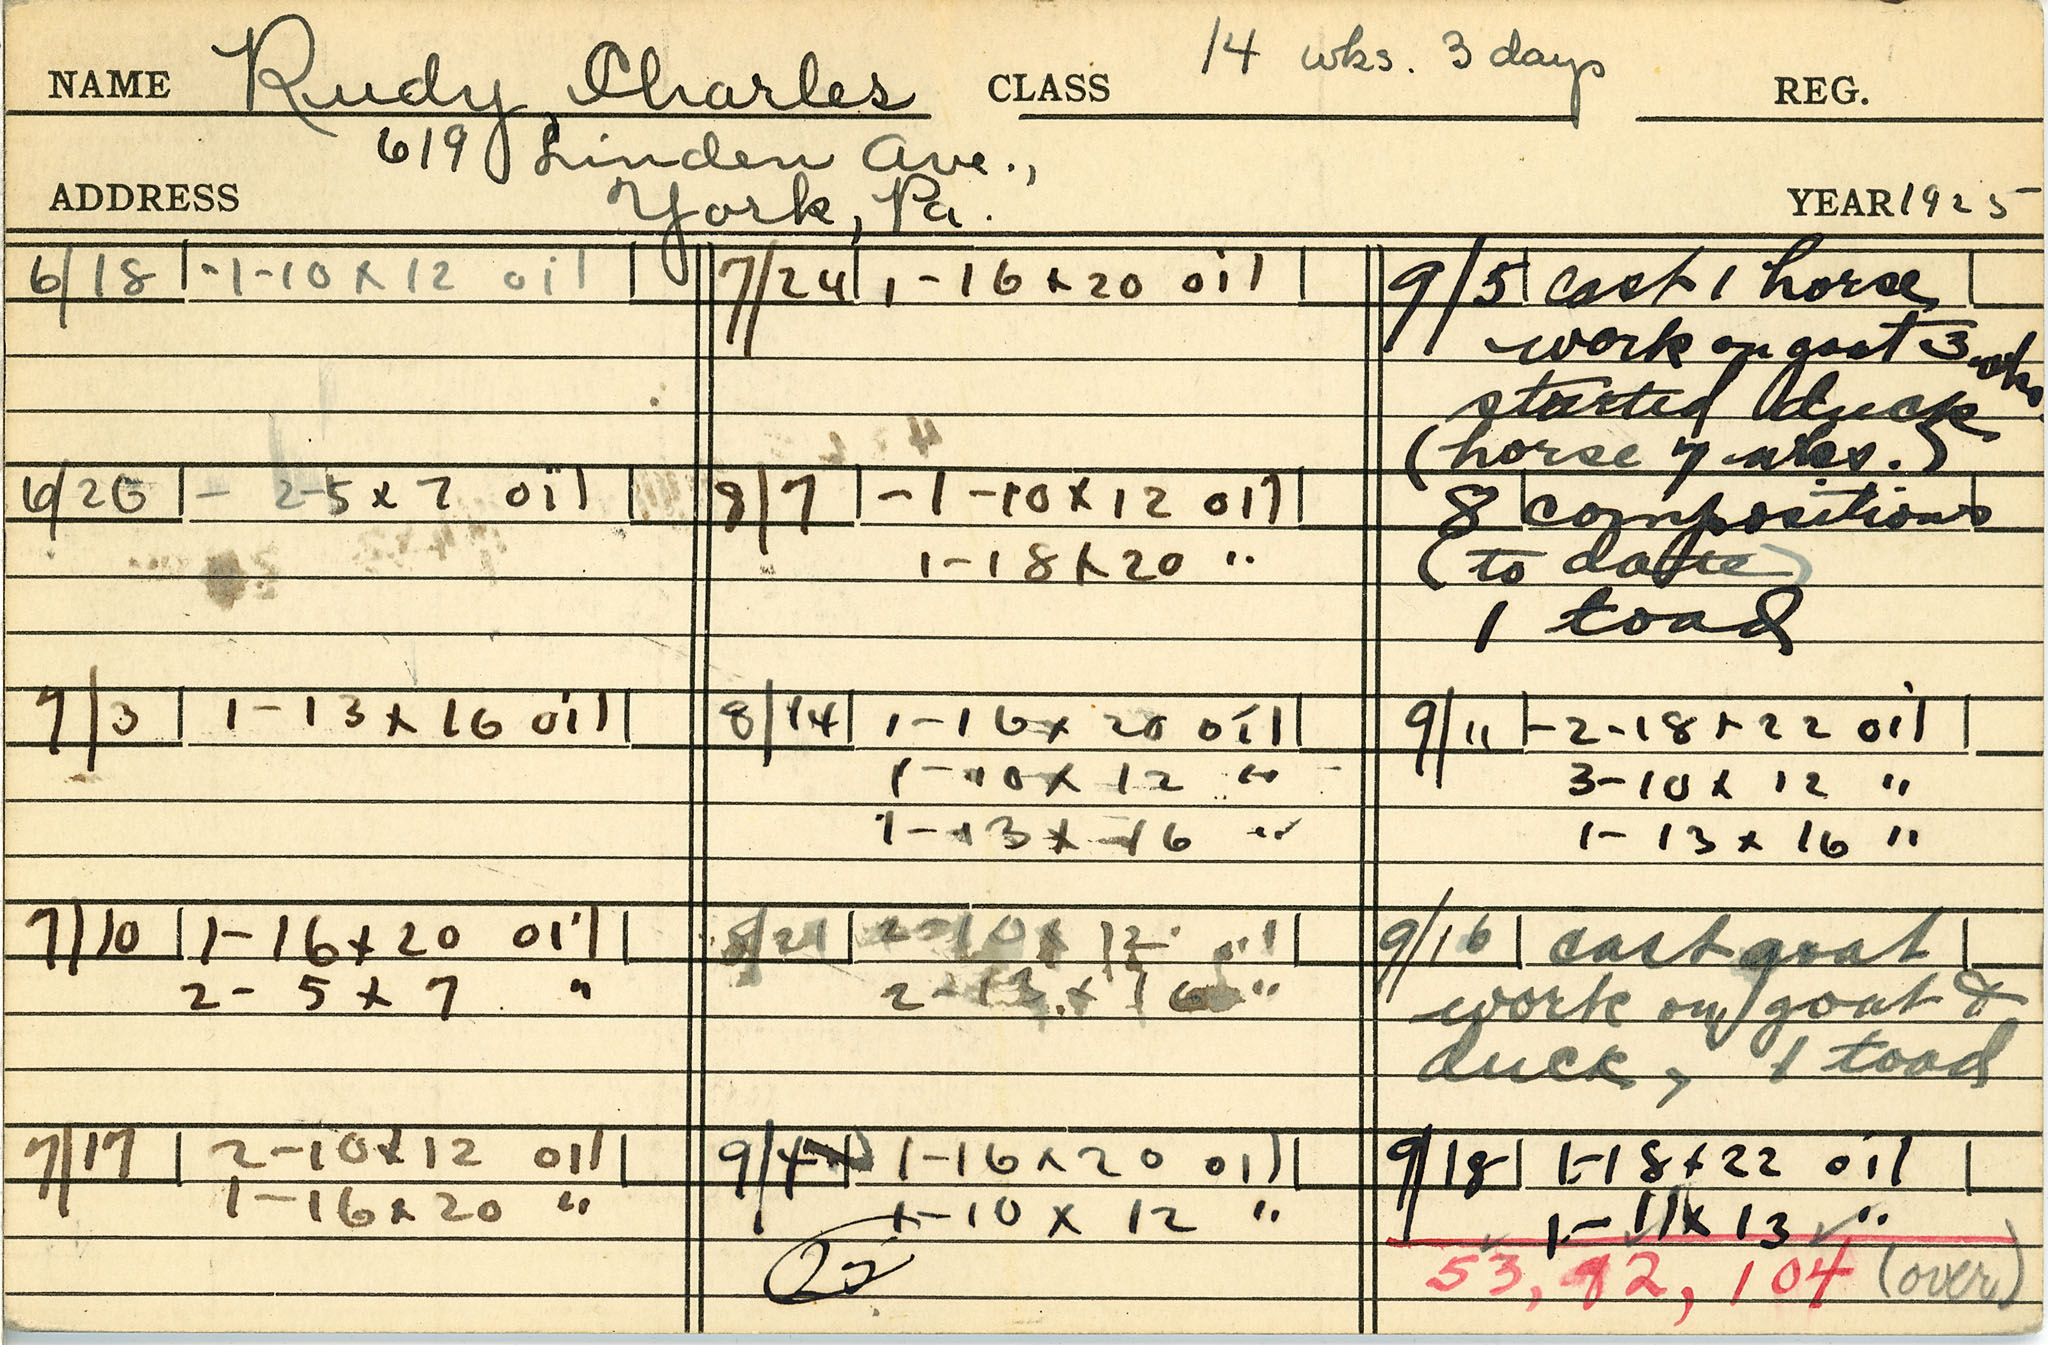 NAME Rudy Charles CLASS 14 wks. 3 days REG.
619 Linden Ave.,
ADDRESS York, Pa. YEAR 1925
6/18 -1-10 x 12 oil
6/26 - 2-5 x 7 oil
7/3 1-13 x 16 oil
7/10 1-16 x 20 oil
2- 5 x 7 "
7/17 2-10 x 12 oil
1-16 x 20 "
7/24 1-16 x 20 oil
8/7 -1-10 x 12 oil
1-18 x 20 "
8/14 1-16 x 20 oil
1-10 x 12 "
1-13 x 16 "
8/21 2-10 x 12 oil
2-13 x 16 "
9/4 1-16 x 20 oil
1-10 x 12 "
22
9/5 cast 1 horse
work on goat 3 wks
started duck
(horse 7 wks.)
8 compositions
(to date)
1 toad
9/11 -2-18 x 22 oil
3-10 x 12 "
1-13 x 16 "
9/16 cast goat
work on goat &
duck, 1 toad
9/18 1-18 x 22 oil
1-11 x 13 "
53, 92, 104 (over)